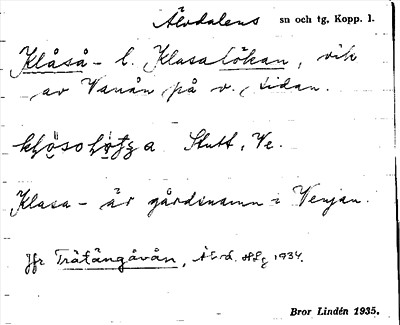 Älvdalens sn och tg. Kopp. l.
Klåså- l. Klasalökan, vik
av Vanån på v. sidan.
a Slutt, Ve.
Klasa- är gårdsnamn i Venjan.
Jfr Trätängåvån, 1934.
Bror Lindén 1935.